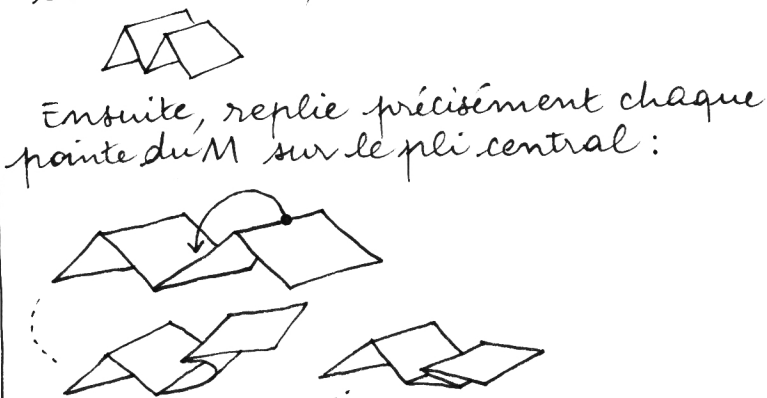 Ensuite, replie précisément chaque
pointe du M sur le pli central :